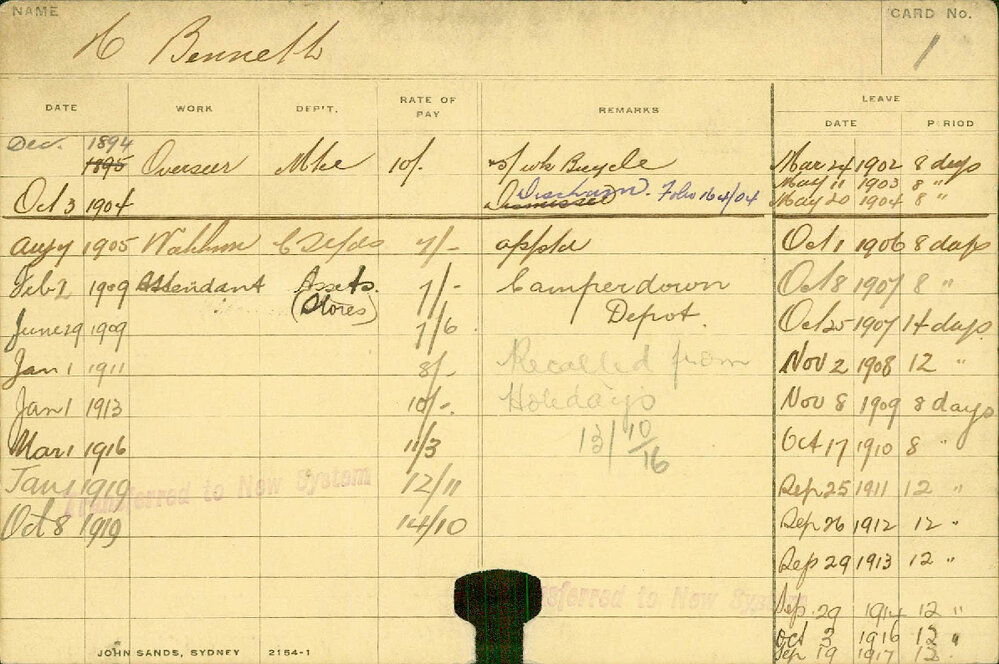 NAME
CARD No.
H Bennett
1
DATE WORK DEP'T. RATE OF PAY REMARKS LEAVE
DATE PERIOD
Dec. 1894
1895 Overseer Mke 10/. Bicycle Mar 24 1902 8 days
May 11 1903 8 "
Oct 3 1904 Dismissed Folio 164/04 May 20 1904 8 "
Aug 7 1905 7/- appld Oct 1 1906 8 days
Feb 2 1909 Attendant Assets. 7/- Camperdown Oct 8 1907 8 "
(Stores) Depot.
June 29 1909 7/6 Oct 25 1907 14 days
Jan 1 1911 8/- Recalled from Nov 2 1908 12 "
Jan 1 1913 10/-. Holidays Nov 8 1909 8 days
Mar 1 1916 11/3 13/10/16 Oct 17 1910 8 "
Jan 1 1919 12/11 Sep 25 1911 12 "
Transferred to New System
Oct 8 1919 14/10 Sep 26 1912 12 "
Sep 29 1913 12 "
Transferred to New System
Sep. 29 1914 12 "
Oct 3 1916 12 "
Sep 19 1917 12 "
JOHN SANDS, SYDNEY 2154-1